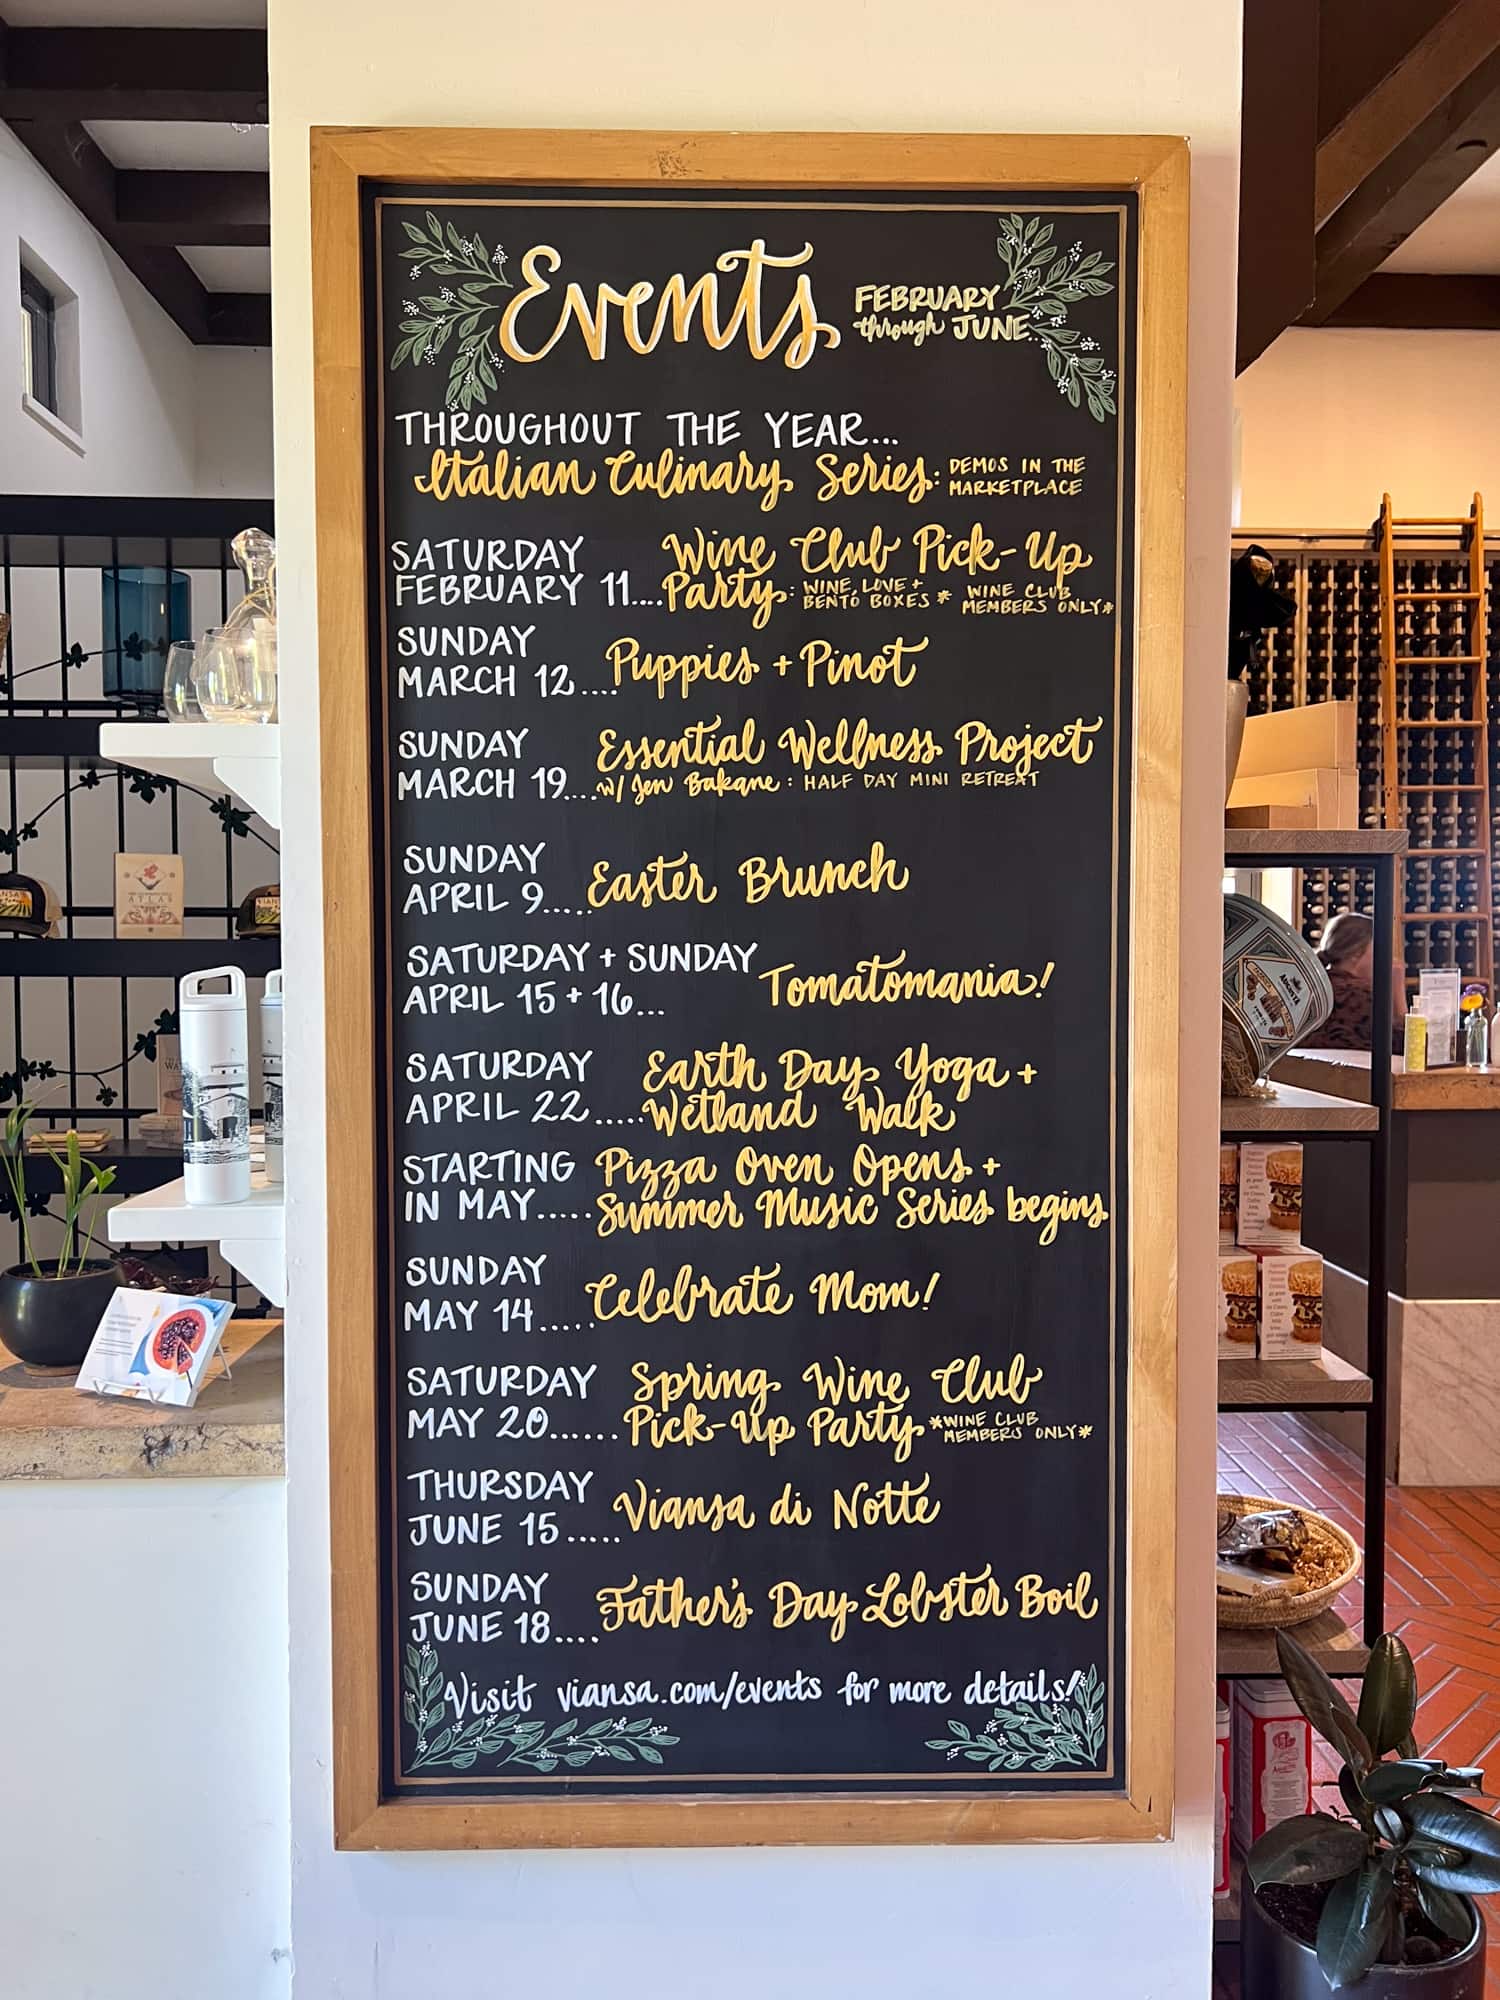 Events
FEBRUARY
through JUNE...
THROUGHOUT THE YEAR...
Italian Culinary Series: DEMOS IN THE
MARKETPLACE
SATURDAY
FEBRUARY 11....
Wine Club Pick-Up
Party: WINE, LOVE +
BENTO BOXES
* WINE CLUB
MEMBERS ONLY*
SUNDAY
MARCH 12....
Puppies + Pinot
SUNDAY
MARCH 19....
Essential Wellness Project
w/ Jen Bakane: HALF DAY MINI RETREAT
SUNDAY
APRIL 9.....
Easter Brunch
SATURDAY + SUNDAY
APRIL 15 + 16...
Tomatomania!
SATURDAY
APRIL 22.....
Earth Day Yoga +
Wetland Walk
STARTING
IN MAY.....
Pizza Oven Opens +
Summer Music Series begins
SUNDAY
MAY 14.....
Celebrate Mom!
SATURDAY
MAY 20......
Spring Wine Club
Pick-Up Party *WINE CLUB
MEMBERS ONLY*
THURSDAY
JUNE 15.....
Viansa di Notte
SUNDAY
JUNE 18....
Father's Day Lobster Boil
Visit viansa.com/events for more details!
ATLAS